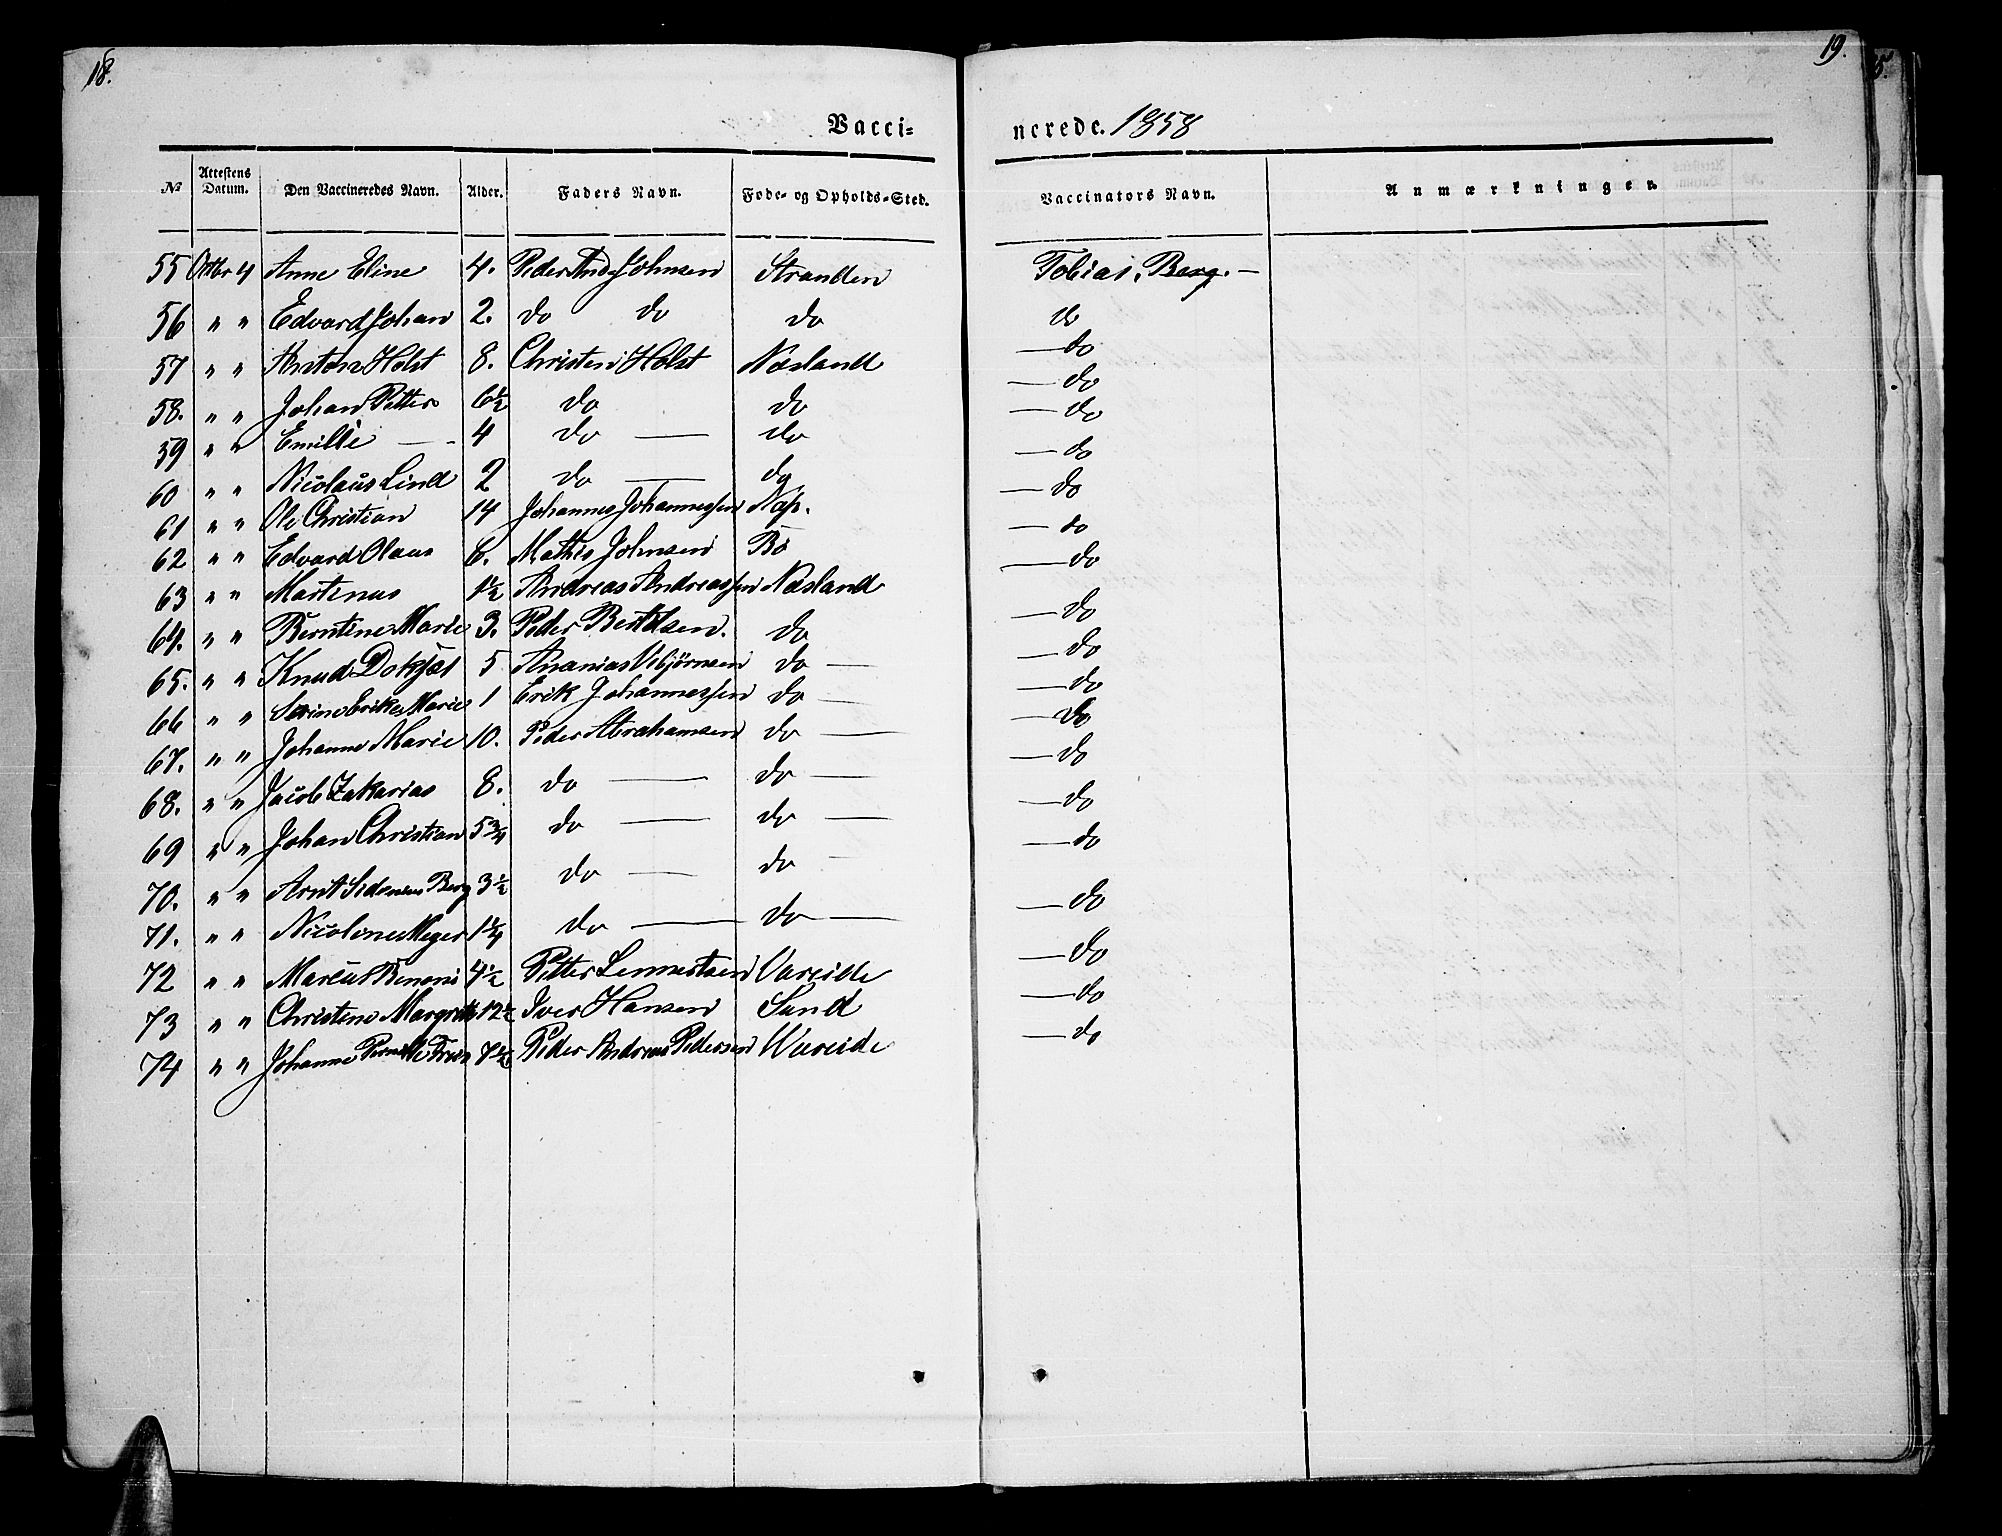 18.
19.
Vacci- nerede. 1858
№ Attestens Datum. Den Vaccineredes Navn. Alder. Faders Navn. Føde- og Opholds-Sted. Vaccinators Navn. Anmærkninger.
55 Octbr 4 Anne Eline 4. Peder And. Johnsen Stranden Tobias Berg. —
56 " " Edvard Johan 2. do do do do
57 " " Anton Holst 8. Christen Holst Næsland — do
58. " " Johan Petter 6½ do do — do
59 " " Emilie — 4 do — do — do
60 " " Nicolaus Lind 2 do — do — do
61 " " Ole Christian 14 Johannes Johannessen Nap. — do
62 " " Edvard Olaus 6. Mathis Johnsen Bø — do
63 " " Martinus 1½ Andreas Andreassen Næsland — do
64. " " Berntine Marie 3. Peder Bertelsen. do — do
65. " " Knud 5 Ananias do — — do
66 " " Marie 1 Erik Johannessen do — — do
67. " " Johanne Marie 10. Peder Abrahamsen do — — do
68. " " Jacob Zakarias 8. do — do — — do
69 " " Johan Christian 5¾ do — do — — do
70. " " Arnt Berg 3½ do — do — — do
71. " " Nicoline Meyer 1¼ do — do — — do
72 " " Marcus Benoni 4½ Petter Lennertsen Vareide — do
73 " " Christine Margrethe 12½ Iver Hansen Sund — do
74 " " Johanne Pernille 7½ Peder Andreas Pedersen Wareide — do